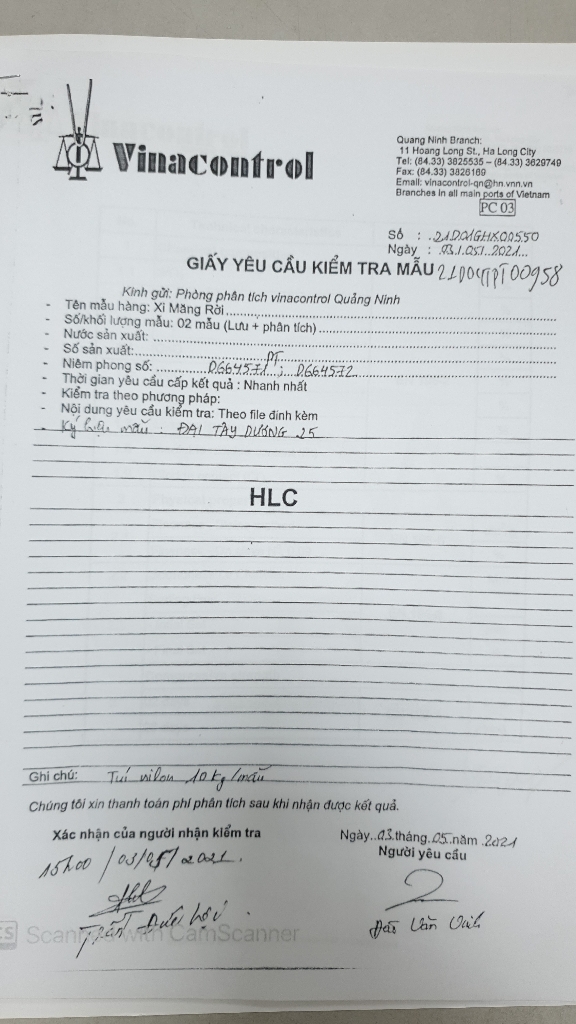 Vinacontrol
Quang Ninh Branch:
11 Hoang Long St., Ha Long City
Tel: (84.33) 3825535 – (84.33) 3829749
Fax: (84.33) 3826169
Email: vinacontrol-qn@hn.vnn.vn
Branches in all main ports of Vietnam
PC 03
Số : 21D01GHX00550
Ngày : 03.1.05.1.2021
GIẤY YÊU CẦU KIỂM TRA MẪU 21D04TPT00958
Kính gửi: Phòng phân tích vinacontrol Quảng Ninh
- Tên mẫu hàng: Xi Măng Rời
- Số/khối lượng mẫu: 02 mẫu (Lưu + phân tích)
- Nước sản xuất:
- Số sản xuất:
PT
- Niêm phong số: DG64571 ; DG64572
- Thời gian yêu cầu cấp kết quả : Nhanh nhất
- Kiểm tra theo phương pháp:
- Nội dung yêu cầu kiểm tra: Theo file đính kèm
- Ký hiệu mẫu : ĐẠI TÂY DƯƠNG 25
HLC
Ghi chú: Túi nilon 10 kg/mẫu
Chúng tôi xin thanh toán phí phân tích sau khi nhận được kết quả.
Xác nhận của người nhận kiểm tra
15h00 / 03/05/2021.
Trần Đức
Ngày 03 tháng 05 năm 2021
Người yêu cầu
Văn
CS Scanned with CamScanner